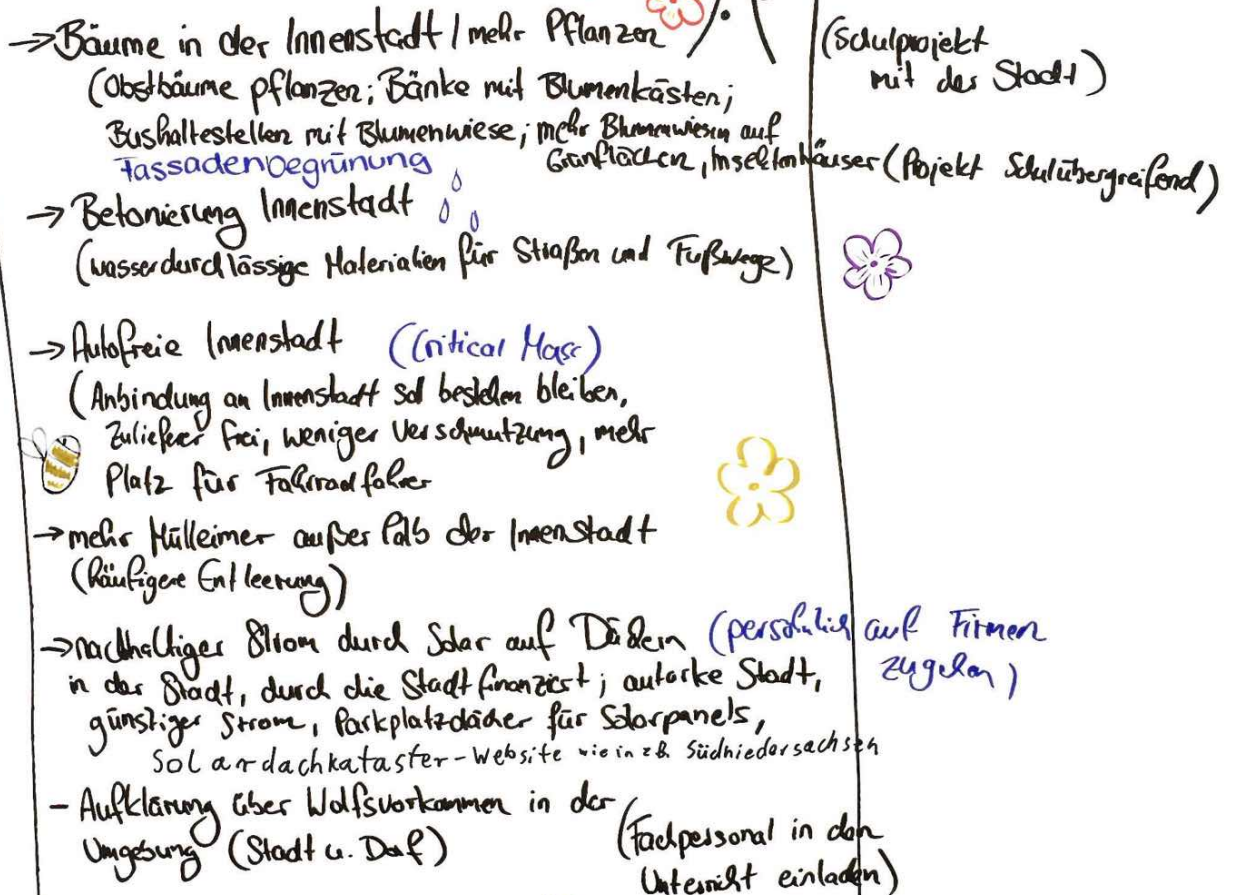 → Bäume in der Innenstadt / mehr Pflanzen
(Schulprojekt
mit der Stadt)
(Obstbäume pflanzen; Bänke mit Blumenkästen;
Bushaltestellen mit Blumenwiese; mehr Blumenwiesen auf
Fassadenbegrünung
Grünflächen, Insektenhäuser (Projekt Schulübergreifend)
→ Betonierung Innenstadt
(wasserdurchlässige Materialien für Straßen und Fußwege)
→ Autofreie Innenstadt (Critical Mass)
(Anbindung an Innenstadt soll bestehen bleiben,
Zulieferer frei, weniger Verschmutzung, mehr
Platz für Fahrradfahrer
→ mehr Mülleimer außerhalb der Innenstadt
(häufigere Entleerung)
→ nachhaltiger Strom durch Solar auf Dächern (persönlich auf Firmen
zugehen)
in der Stadt, durch die Stadt finanziert; autarke Stadt,
günstiger Strom, Parkplatzdächer für Solarpanels,
Solardachkataster-Website wie in z.B. Südniedersachsen
- Aufklärung über Wolfsvorkommen in der
Umgebung (Stadt u. Dorf)
(Fachpersonal in den
Unterricht einladen)